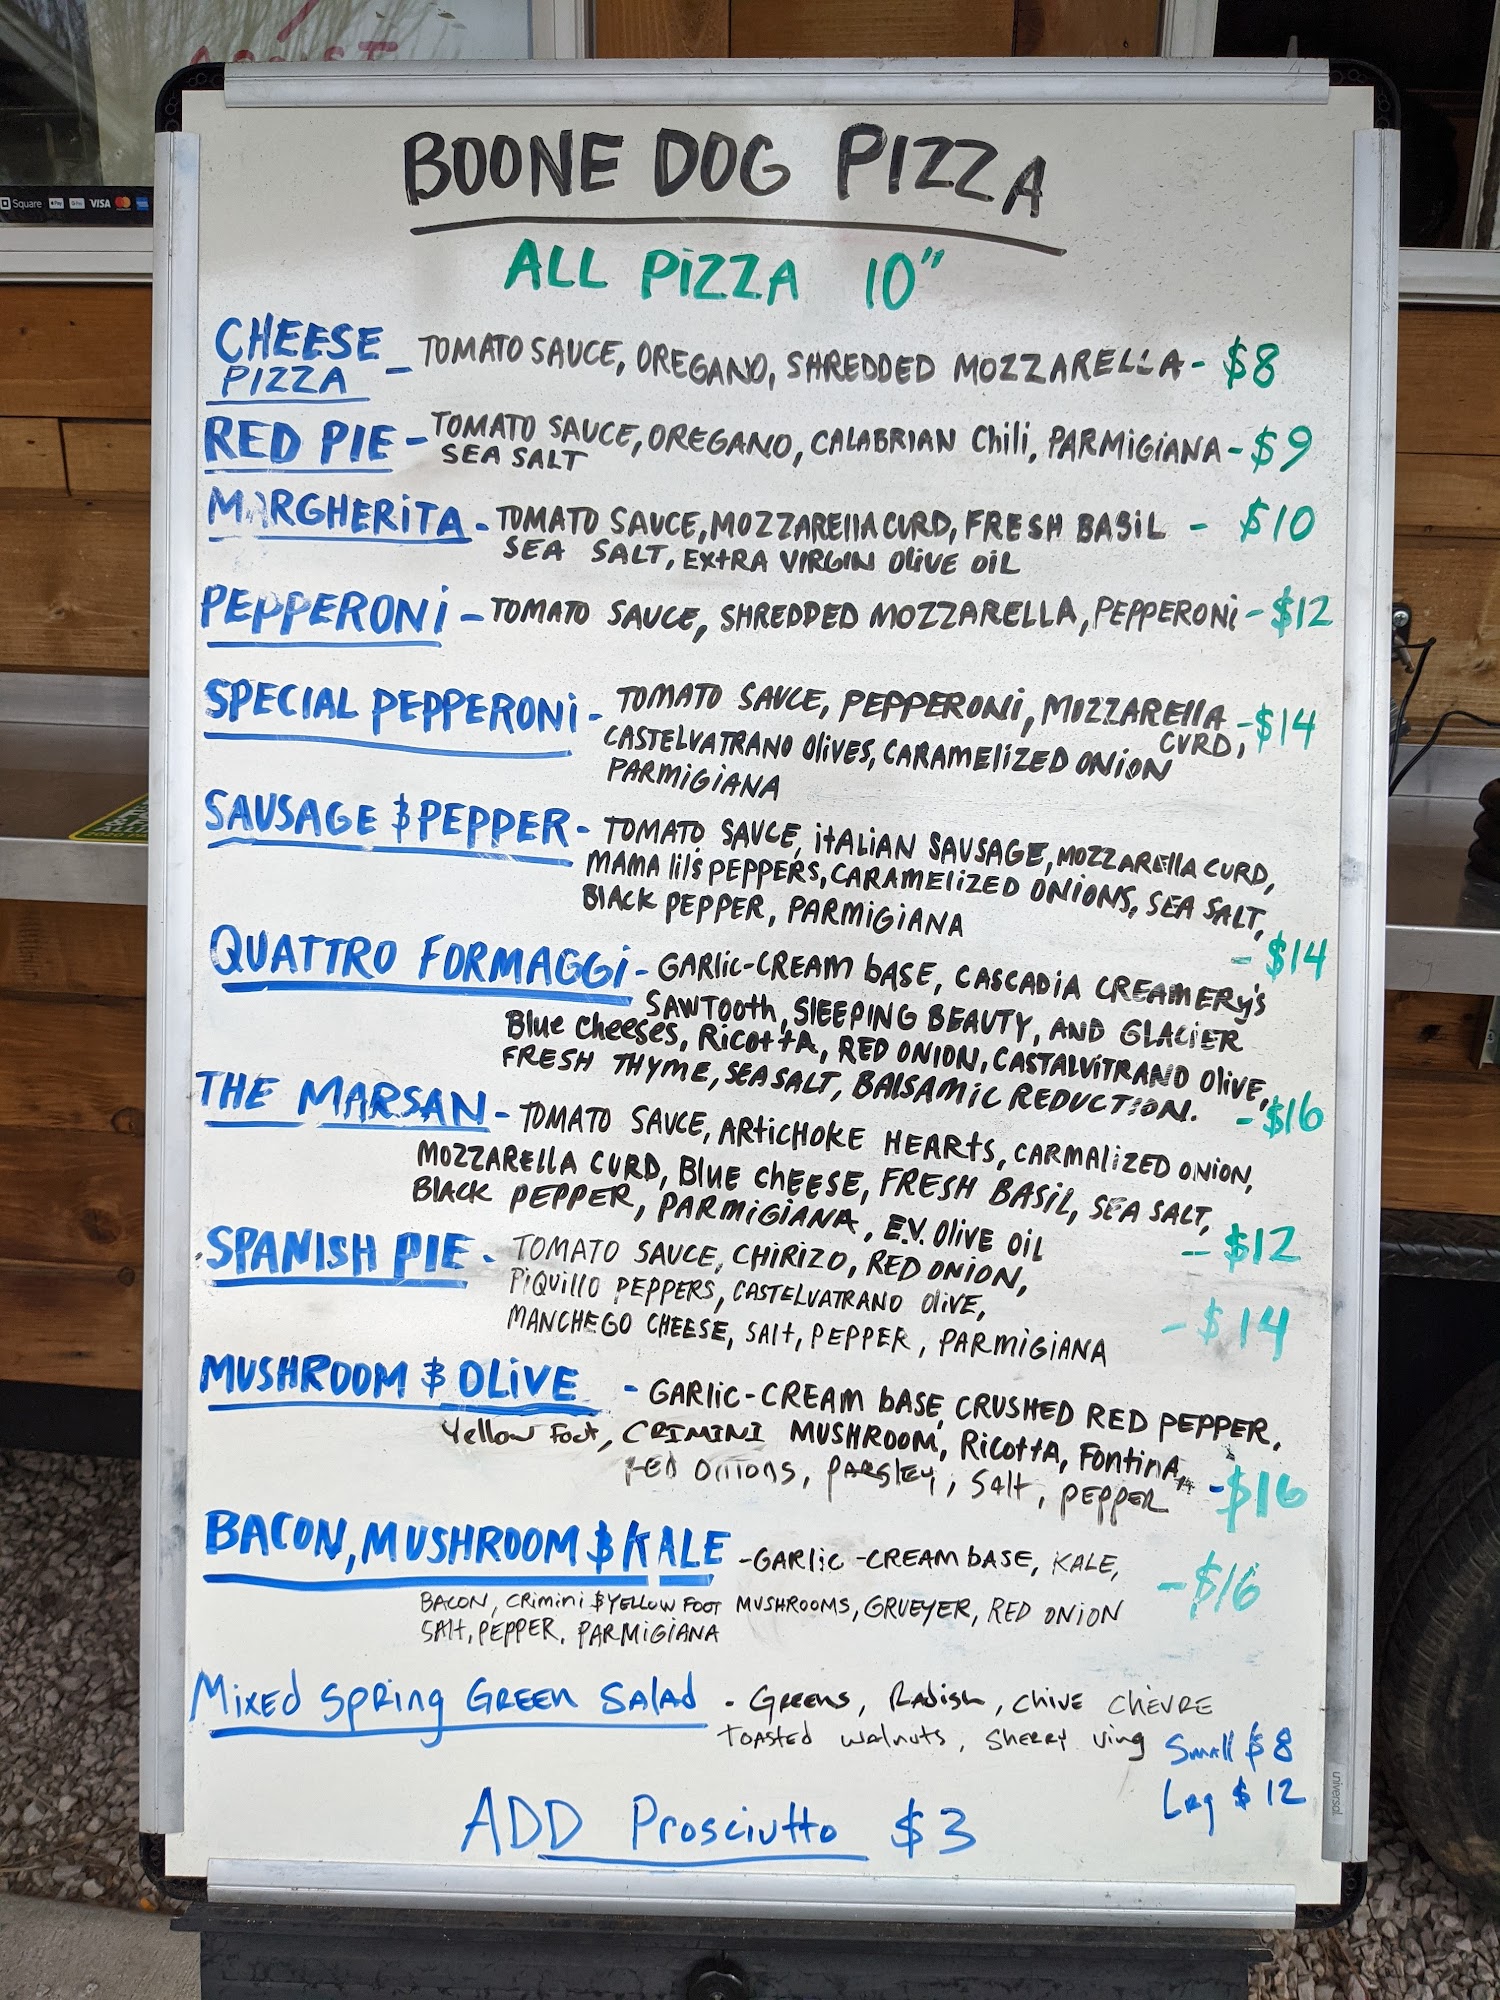 Square Pay G Pay VISA
BOONE DOG PIZZA
ALL PIZZA 10"
CHEESE PIZZA – TOMATO SAUCE, OREGANO, SHREDDED MOZZARELLA - $8
RED PIE – TOMATO SAUCE, OREGANO, CALABRIAN Chili, PARMIGIANA - $9
SEA SALT
MARGHERITA - TOMATO SAUCE, MOZZARELLA CURD, FRESH BASIL - $10
SEA SALT, EXTRA VIRGIN OLIVE OIL
PEPPERONI – TOMATO SAUCE, SHREDDED MOZZARELLA, PEPPERONI - $12
SPECIAL PEPPERONI - TOMATO SAUCE, PEPPERONI, MOZZARELLA CURD, - $14
CASTELVATRANO OLIVES, CARAMELIZED ONION
PARMIGIANA
SAUSAGE & PEPPER - TOMATO SAUCE, ITALIAN SAUSAGE, MOZZARELLA CURD,
MAMA lil's PEPPERS, CARAMELIZED ONIONS, SEA SALT,
BLACK PEPPER, PARMIGIANA - $14
QUATTRO FORMAGGI - GARLIC-CREAM BASE, CASCADIA CREAMERY'S
SAWTOOTH, SLEEPING BEAUTY, AND GLACIER
Blue Cheeses, Ricotta, RED ONION, CASTALVITRANO OLIVE,
FRESH THYME, SEA SALT, BALSAMIC REDUCTION. - $16
THE MARSAN - TOMATO SAUCE, ARTICHOKE HEARTS, CARMALIZED ONION,
MOZZARELLA CURD, BLUE CHEESE, FRESH BASIL, SEA SALT,
BLACK PEPPER, PARMIGIANA, E.V. OLIVE OIL - $12
SPANISH PIE - TOMATO SAUCE, CHIRIZO, RED ONION,
PIQUILLO PEPPERS, CASTELVATRANO OLIVE,
MANCHEGO CHEESE, SALT, PEPPER, PARMIGIANA - $14
MUSHROOM & OLIVE - GARLIC-CREAM BASE, CRUSHED RED PEPPER,
Yellow Foot, CRIMINI MUSHROOM, Ricotta, Fontina,
RED ONIONS, PARSLEY, Salt, PEPPER - $16
BACON, MUSHROOM & KALE - GARLIC-CREAM BASE, KALE,
BACON, CRIMINI & YELLOW FOOT MUSHROOMS, GRUEYER, RED ONION - $16
SALT, PEPPER, PARMIGIANA
Mixed Spring Green Salad - Greens, Radish, Chive CHÈVRE
Toasted walnuts, Sherry Ving Small $8
Lrg $12
ADD Prosciutto $3
universal